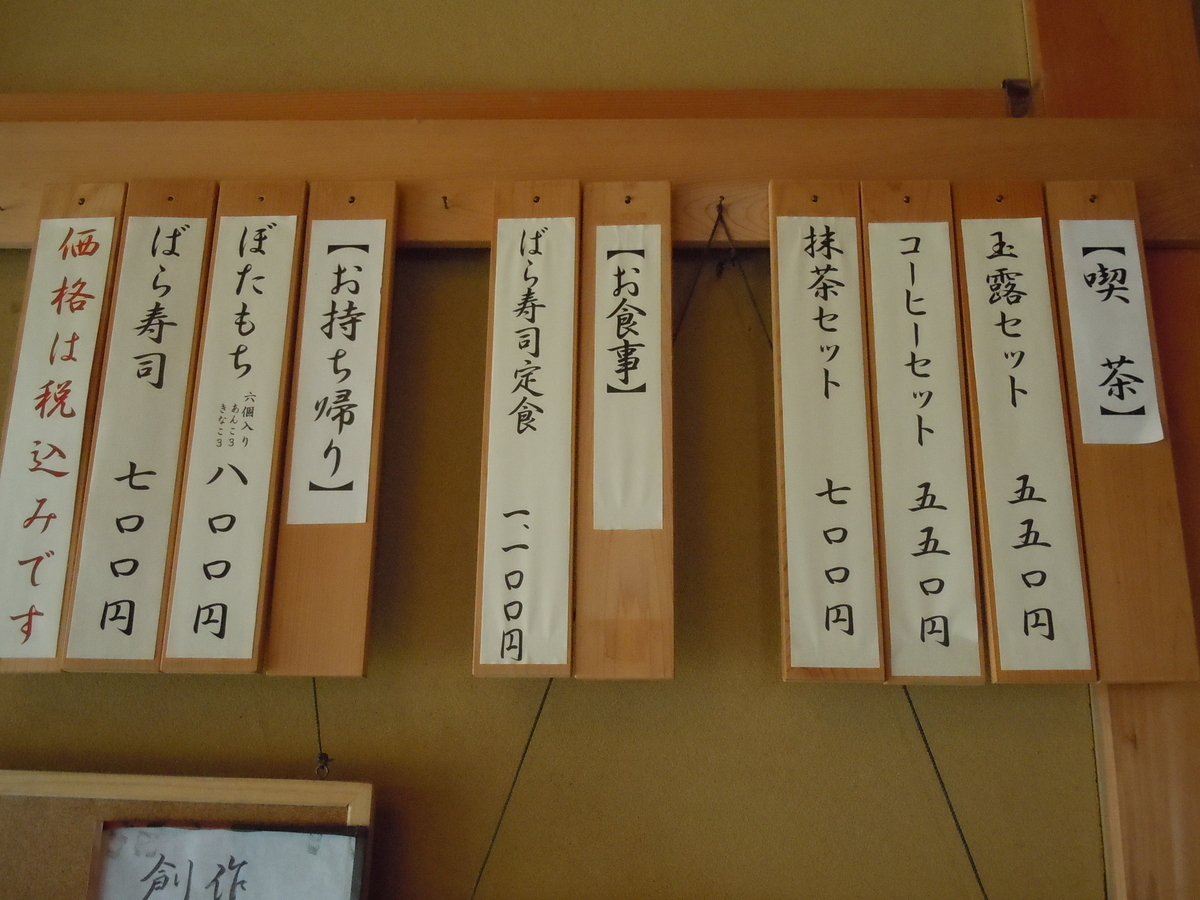 【喫茶】
玉露セット 五五〇円
コーヒーセット 五五〇円
抹茶セット 七〇〇円
【お食事】
ばら寿司定食 一、一〇〇円
【お持ち帰り】
ぼたもち 六個入り あんこ3 きなこ3 八〇〇円
ばら寿司 七〇〇円
価格は税込みです
創作